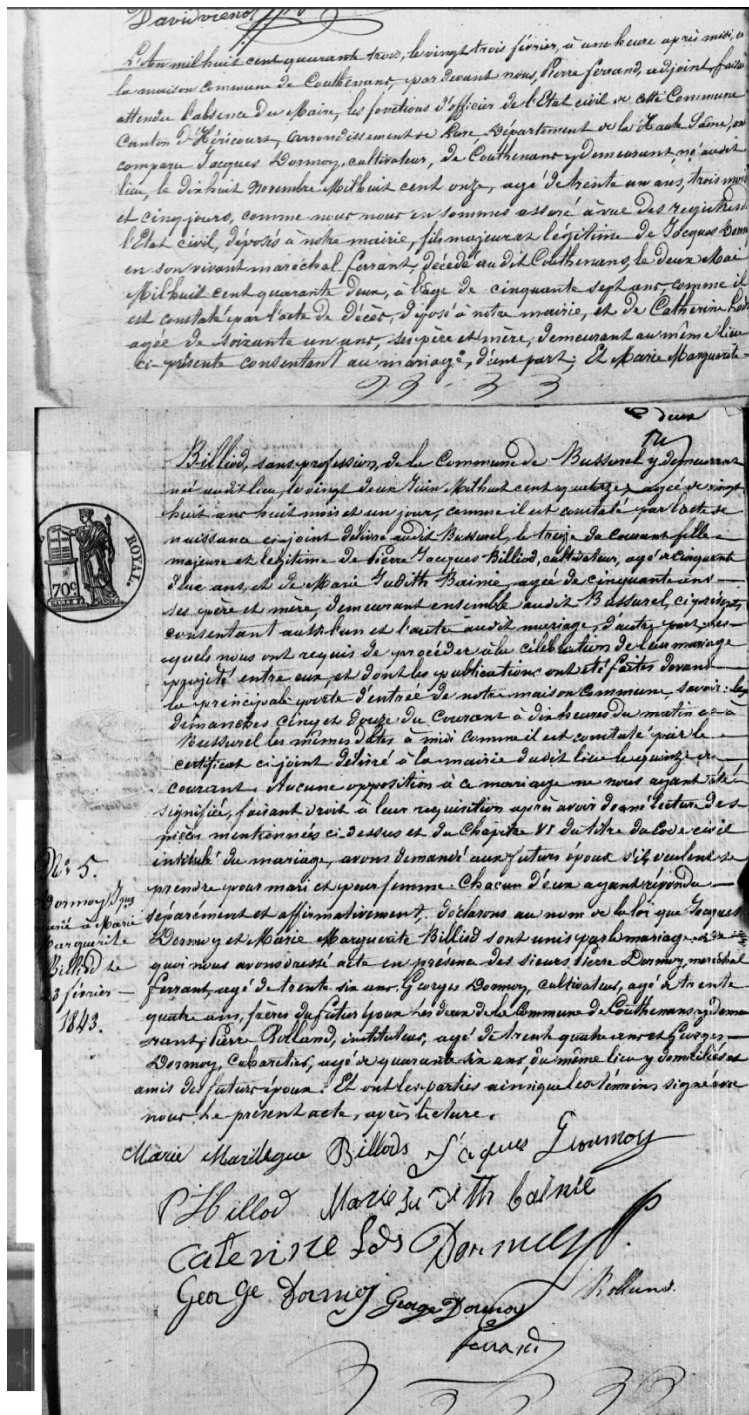 L'An mil huit cent quarante trois, le vingt trois février, à une heure après midi, a
la maison commune de Couthenans, par devant nous, Pierre ferrand, adjoint, faisa
attendu l'absence du Maire, les fonctions d'officier de l'Etat civil de cette Commune
Canton d'Héricourt, arrondissement de Lure, Département de la Haute Saône, on
comparu Jacques Dormoy, cultivateur, de Couthenans y demeurant né audit
lieu, le dix huit Novembre Mil huit cent onze, agé de trente un ans, trois mois
et cinq jours, comme nous nous en sommes assuré à vue des registres de
l'Etat civil, déposés à notre mairie, fils majeur et légitime de Jacques Dorm
en son vivant maréchal ferrant, décédé au dit Couthenans, le deux Mai
Mil huit cent quarante deux, à l'age de cinquante sept ans, comme il
est constaté par l'acte de décès, déposé à notre mairie, et de Catherine Lods
agée de soixante un ans, ses père et mère, demeurant au même lieu
ci-présente consentant au mariage, d'une part; Et Marie Marguerite
deux
Billiod, sans profession, de la Commune de Bussurel y demeurant
née audit lieu, le vingt deux Juin Mil huit cent quatorze, agée de vingt
huit ans huit mois et un jour, comme il est constaté par l'acte de
naissance ci-joint délivré audit Bussurel, le treize du courant fille
majeure et légitime de Pierre Jacques Billiod, cultivateur, agé de cinquant
ans, et de Marie Judith Bainié, agée de cinquante ans
ses père et mère, demeurant ensemble audit Bussurel, ci présents
consentant aussi l'un et l'autre audit mariage, d'autre part, les-
quels nous ont requis de procéder à la célébration de leur mariage
projeté entre eux, et dont les publications ont été faites devant
la principale porte d'entrée de notre maison Commune, savoir: les
dimanches cinq et douze du Courant à dix heures du matin et à
Bussurel les mêmes dates à midi comme il est constaté par le
certificat ci-joint délivré à la mairie dudit lieu le quinze du
courant. Aucune opposition à ce mariage ne nous ayant été
signifiée, faisant droit à leur requisition après avoir donné lecture des
pièces mentionnées ci-dessus et du Chapitre VI du titre du Code civil
intitulé du mariage, avons demandé aux futurs époux s'ils veulent se
prendre pour mari et pour femme. Chacun d'eux ayant répondu
séparément et affirmativement, déclarons au nom de la loi que Jacques
Dormoy et Marie Marguerite Billiod sont unis par le mariage. et de
quoi nous avons dressé acte en présence des sieurs, Pierre Dormoy, maréchal
ferrant, agé de trente six ans, Georges Dormoy, cultivateur, agé de trente
quatre ans, frères du futur époux les deux de la Commune de Couthenans y deme
rant, Pierre Rolland, instituteur, agé de trente quatre ans et Georges
Dormoy, Cabaretier, agé de quarante six ans, du même lieu y domiciliés et
amis des futurs époux. Et ont les parties ainsi que les témoins signé avec
nous le présent acte, après lecture.
ROYAL.
70c
No. 5.
Dormoy Jqus
marié à Marie
Marguerite
Billiod le
23 février
1843.
Marie Billods Jaques Dormoy
P J Billod Marie Ju di th bainié
Caterine Lods Dormoy
George Dormoy George Dormoy Rolland.
Ferrand